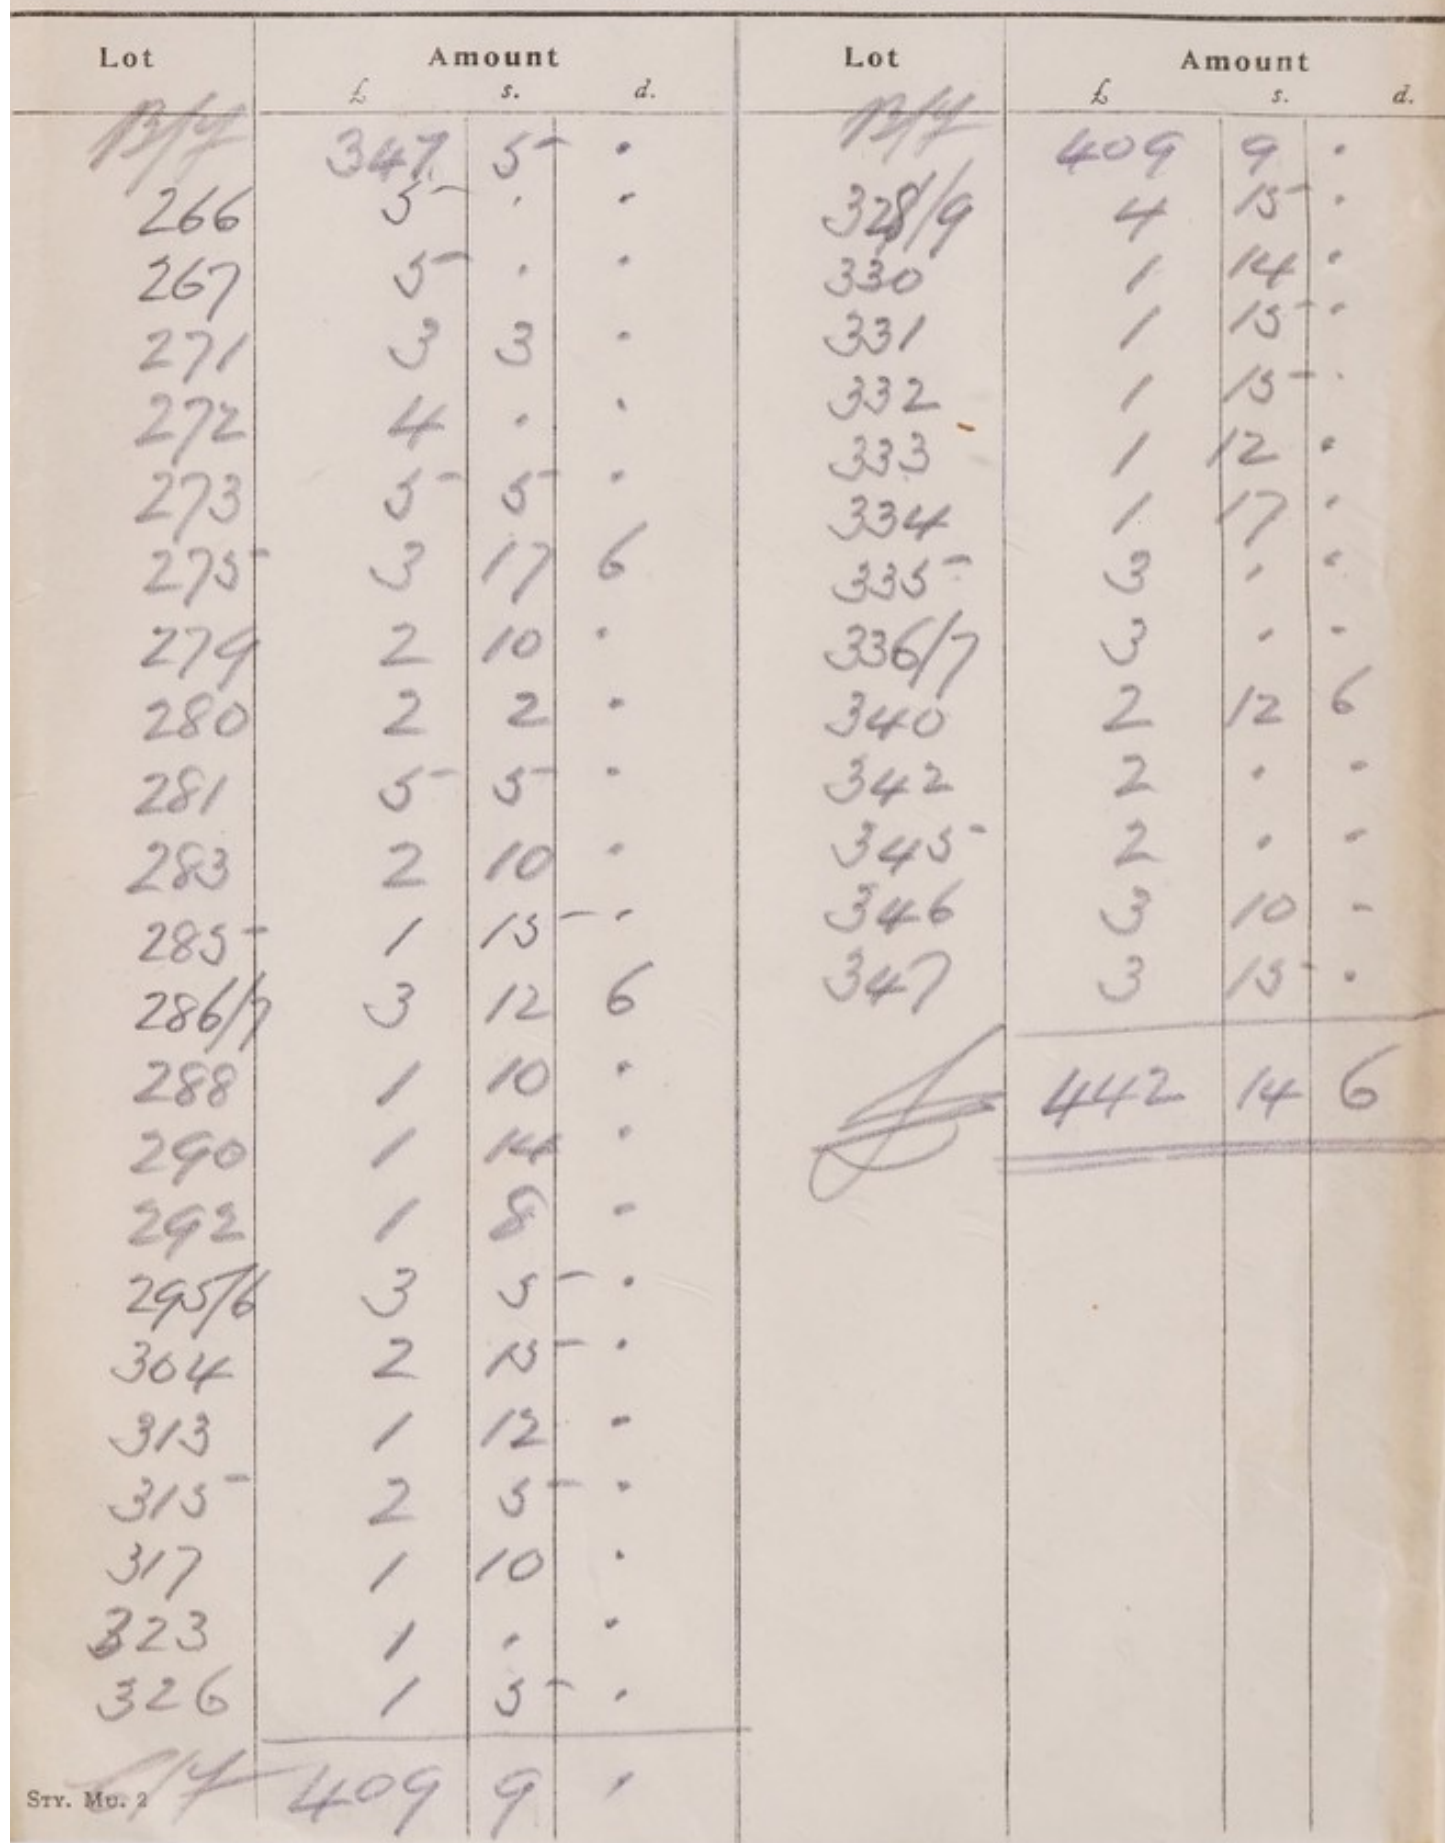 Lot Amount
£ s. d.
B/F 347 5 .
266 5 . .
267 5 . .
271 3 3 .
272 4 . .
273 5 5 .
275 3 17 6
279 2 10 .
280 2 2 .
281 5 5 .
283 2 10 .
285 1 15 .
286/7 3 12 6
288 1 10 .
290 1 14 .
292 1 8 .
295/6 3 5 .
304 2 15 .
313 1 12 .
315 2 5 .
317 1 10 .
323 1 . .
326 1 5 .
C/F 409 9 .
STY. MU. 2
Lot Amount
£ s. d.
B/F 409 9 .
328/9 4 15 .
330 1 14 .
331 1 15 .
332 1 15 .
333 1 12 .
334 1 17 .
335 3 . .
336/7 3 . .
340 2 12 6
342 2 . .
345 2 . .
346 3 10 .
347 3 15 .
442 14 6